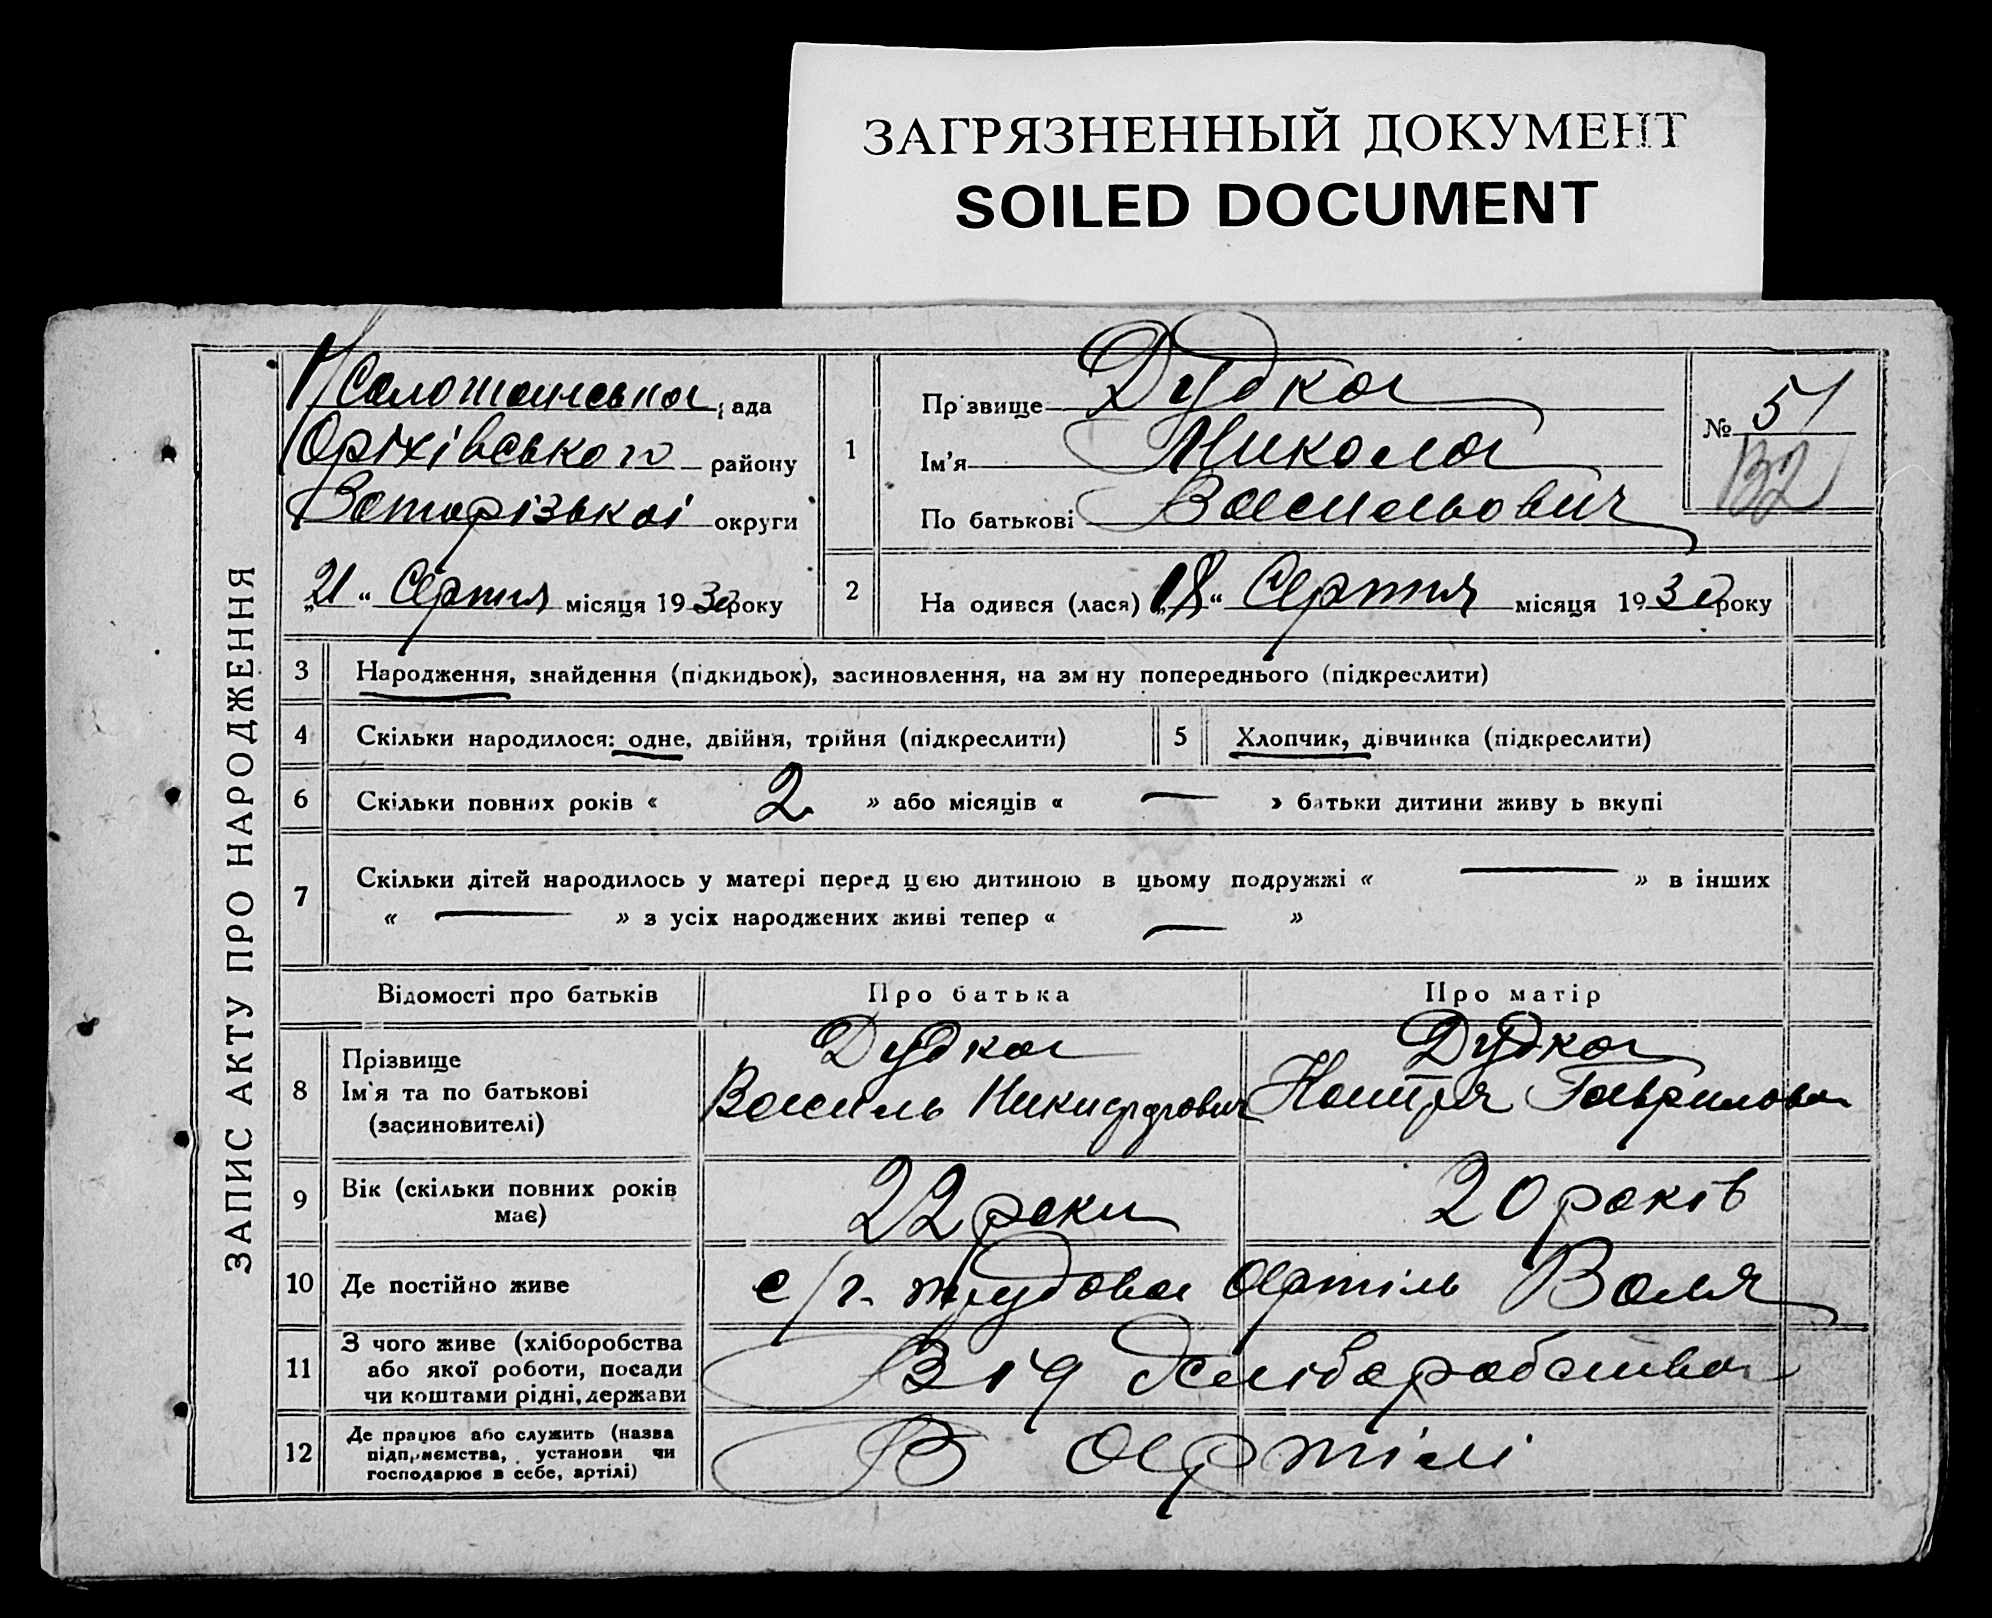 ЗАГРЯЗНЕННЫЙ ДОКУМЕНТ
SOILED DOCUMENT
ЗАПИС АКТУ ПРО НАРОДЖЕННЯ
рада
Оріхівського району
Запорізької округи
„21“ Серпня місяця 1930 року
1
Прізвище Дудка
Ім’я Микола
По батькові Васильович
№ 51
132
2
На одився (лася) „18“ Серпня місяця 1930 року
3 Народження, знайдення (підкидьок), засиновлення, на зміну попереднього (підкреслити)
4 Скільки народилося: одне, двійня, трійня (підкреслити)
5 Хлопчик, дівчинка (підкреслити)
6 Скільки повних років « 2 » або місяців « — » батьки дитини живу ь вкупі
7 Скільки дітей народилось у матері перед цією дитиною в цьому подружжі « — » в інших
« — » з усіх народжених живі тепер « — »
Відомості про батьків Про батька Про матір
8 Прізвище
Ім`я та по батькові
(засиновителі)
Дудка
Василь Никифорович
Дудка
Настя Гаврилова
9 Вік (скільки повних років
має)
22 роки 20 років
10 Де постійно живе с/г. трудова Артіль Воля
11 З чого живе (хліборобства
або якої роботи, посади
чи коштами рідні, держави
Від хліборобства
12 Де працює або служить (назва
підприємства, установи чи
господарює в себе, артілі)
В Артілі